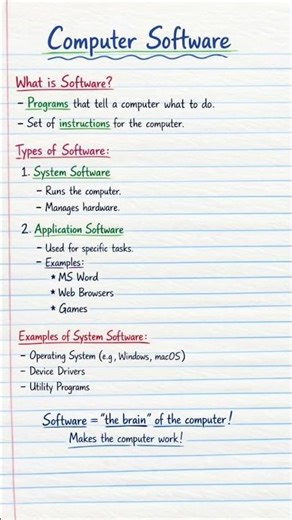 Computer Software
What is Software?
– Programs that tell a computer what to do.
– Set of instructions for the computer.
Types of Software:
1. System Software
– Runs the computer.
– Manages hardware.
2. Application Software
– Used for specific tasks.
– Examples:
* MS Word
* Web Browsers
* Games
Examples of System Software:
– Operating System (e.g., Windows, macOS)
– Device Drivers
– Utility Programs
Software = "the brain" of the computer!
Makes the computer work!